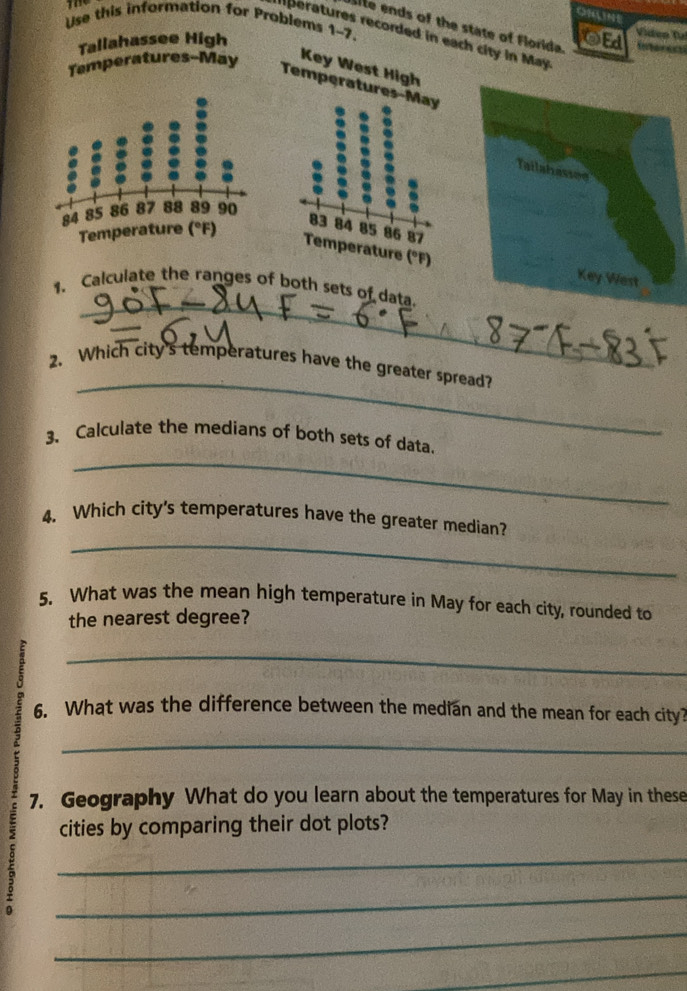 site ends of the state of Florida.
temperatures recorded in each city in May.
Use this information for Problems 1–7.
ONLINE
Ed
Video Tu
Tallahassee High
Temperatures–May
84 85 86 87 88 89 90
Temperature (°F)
Key West High
Temperatures–May
83 84 85 86 87
Temperature (°F)
Tallahassee
Key West
1. Calculate the ranges of both sets of data.
90°F - 84 F = 6°F 87°F - 83°F
=
2. Which city's temperatures have the greater spread?
3. Calculate the medians of both sets of data.
4. Which city's temperatures have the greater median?
5. What was the mean high temperature in May for each city, rounded to
the nearest degree?
6. What was the difference between the median and the mean for each city?
7. Geography What do you learn about the temperatures for May in these
cities by comparing their dot plots?
© Houghton Mifflin Harcourt Publishing Company